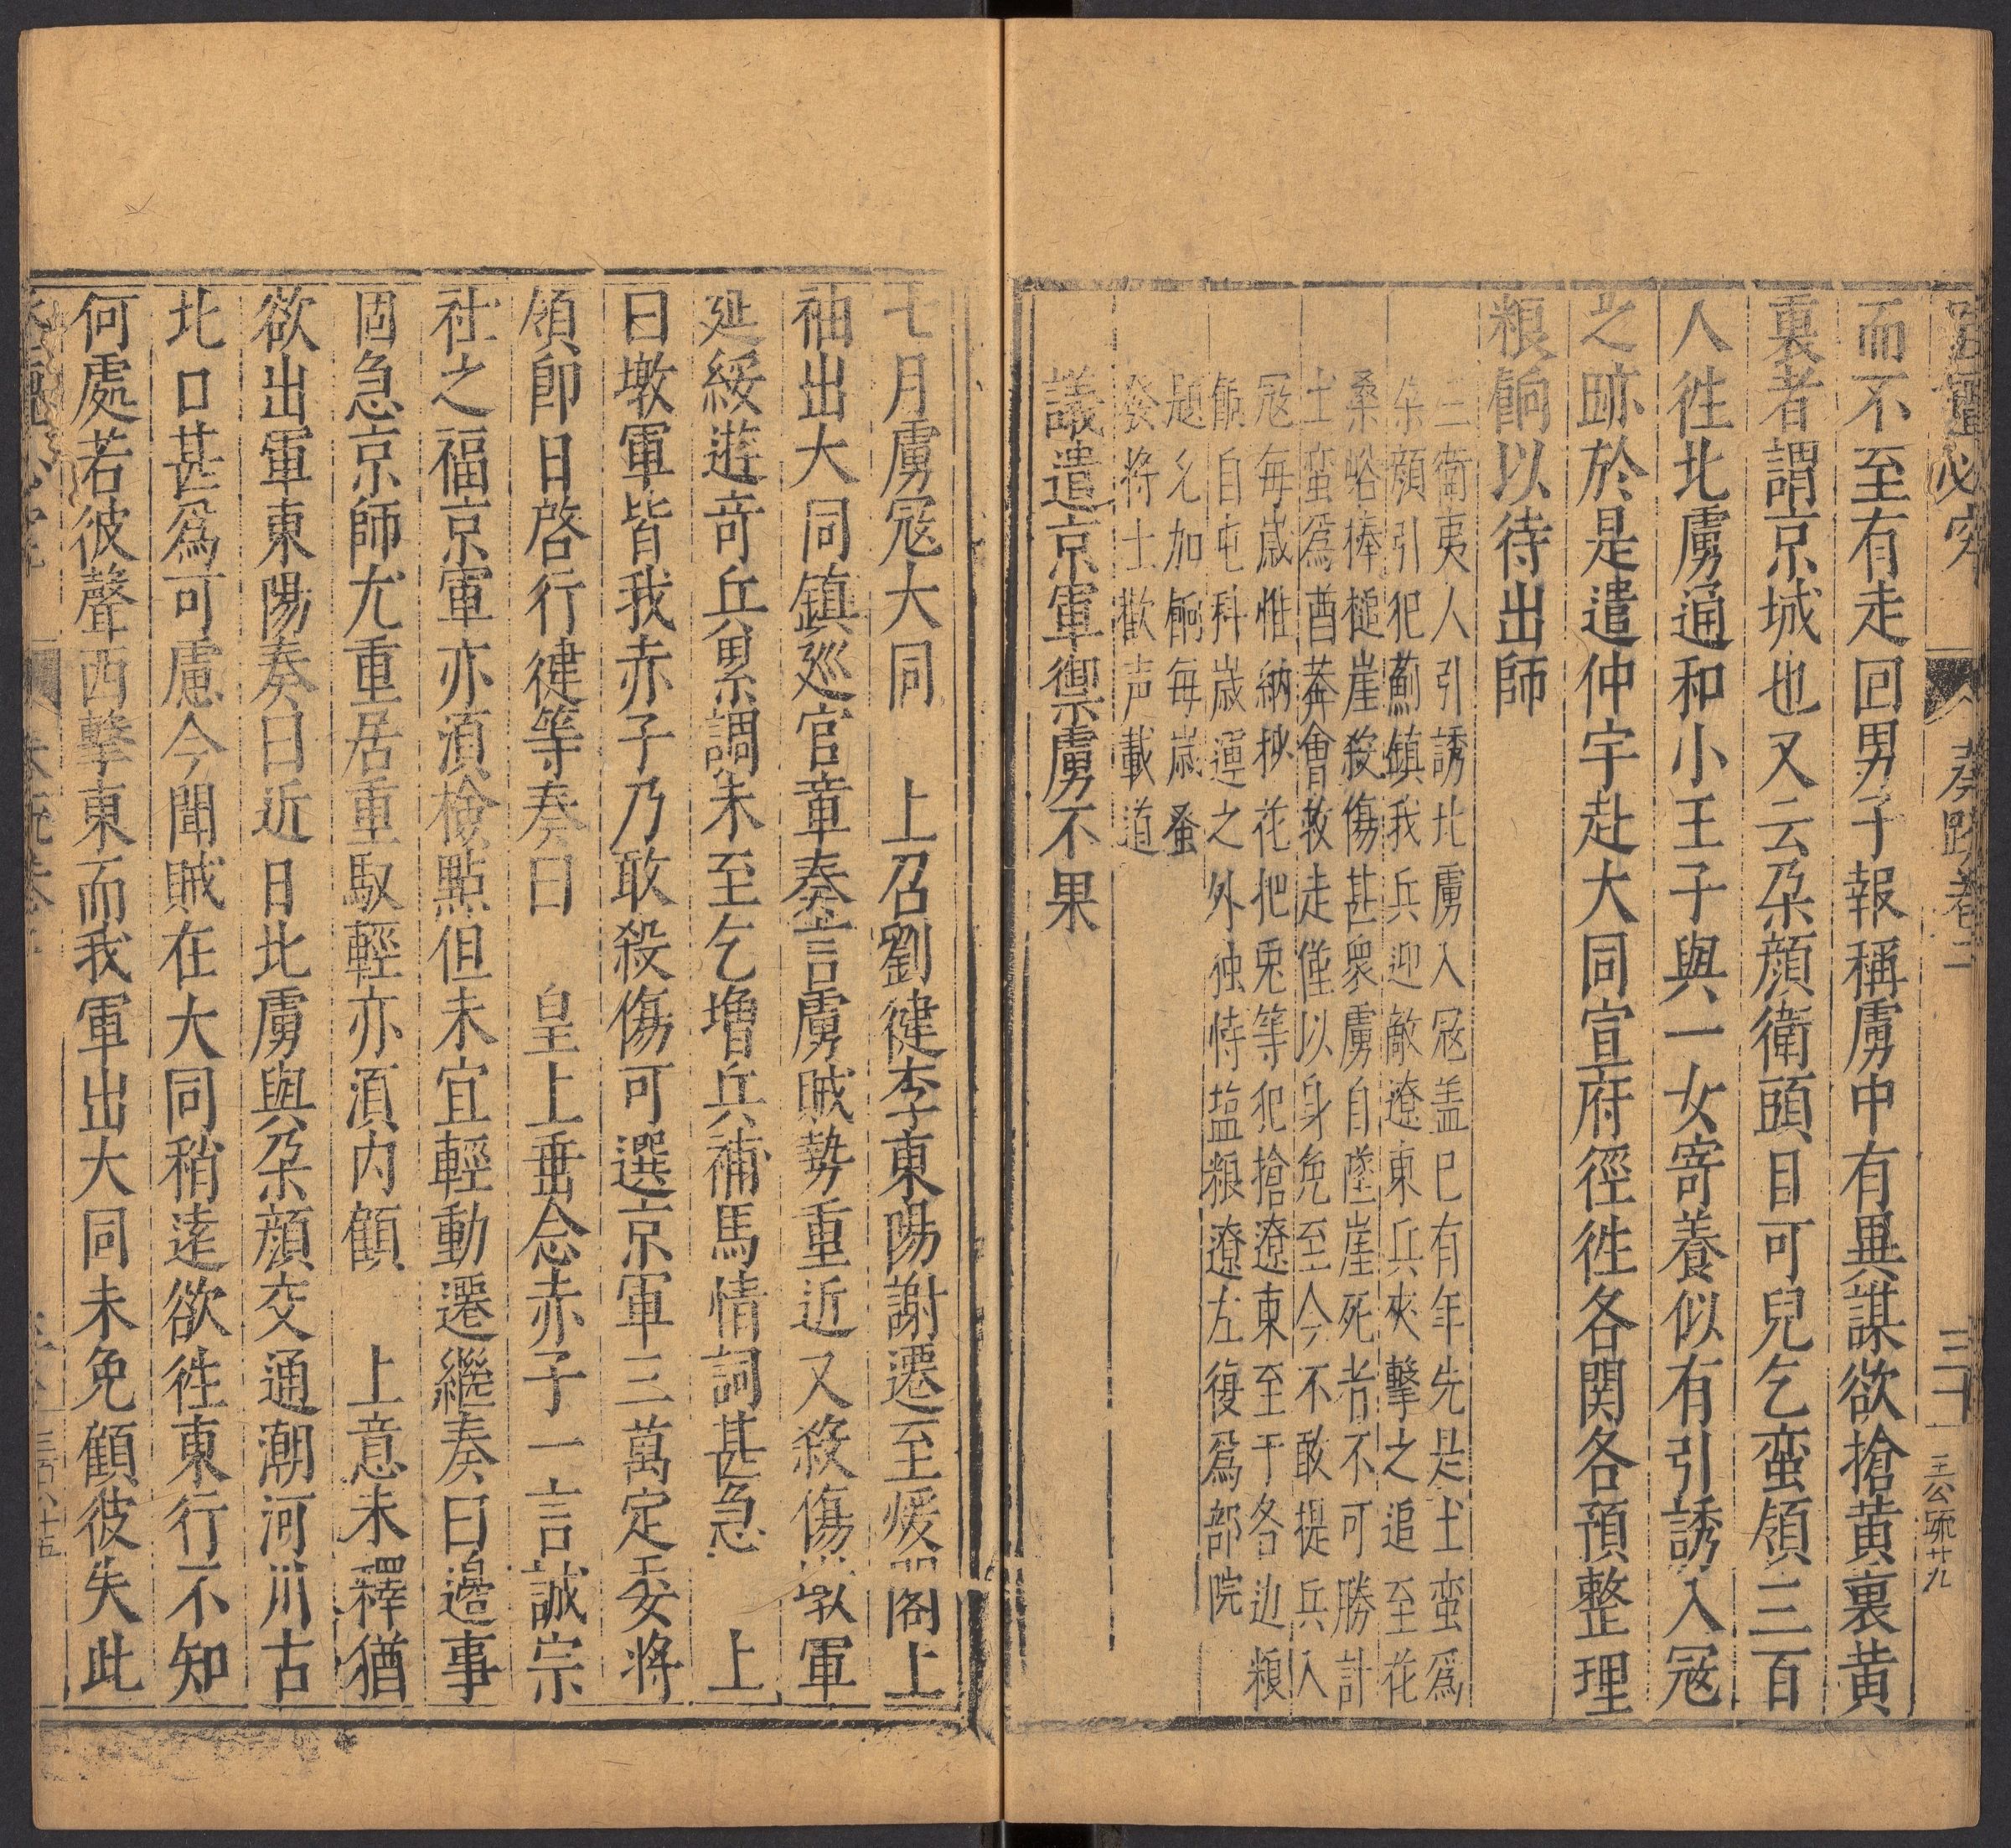 奏疏卷二
三十一
王公疏廿九
而不至有走回男子報稱虜中有異謀欲搶黄裏黄
裏者謂京城也又云朶顔衛頭目可兒乞蛮領三百
人徃北虜通和小王子與一女寄養似有引誘入冦
之跡於是遣仲宇赴大同宣府徑徃各関各預整理
粮餉以待出師
三衛夷人引誘北虜入冦盖已有年先是土蛮爲
朶顔引犯薊鎮我兵迎敵遼東兵夾擊之追至花
桑峪棒槌崖殺傷甚衆虜自墜崖死者不可勝計
土蛮爲酋莽會救走僅以身免至今不敢提兵入
冦毎歳惟納挱花把兎等犯搶遼東至于各边粮
餉自屯科歳運之外独恃塩粮遼左復爲部院
題允加餉毎歳蚤
發将士歡声載道
議遣京軍禦虜不果
七月虜冦大同　上召劉健李東陽謝遷至煖閣上
袖出大同鎮廵官章奏言虜賊勢重近又殺傷墩軍
延綏遊竒兵累調未至乞增兵補馬情詞甚急　上
曰墩軍皆我赤子乃敢殺傷可選京軍三萬定委将
領即日啓行健等奏曰　皇上垂念赤子一言誠宗
社之福京軍亦湏檢點但未宜輕動遷繼奏曰邉事
固急京師尤重居重馭輕亦湏内顧　上意未釋猶
欲出軍東陽奏曰近日北虜與朶顔交通潮河川古
北口甚爲可慮今聞賊在大同稍逺欲徃東行不知
何處若彼聲西擊東而我軍出大同未免顧彼失此